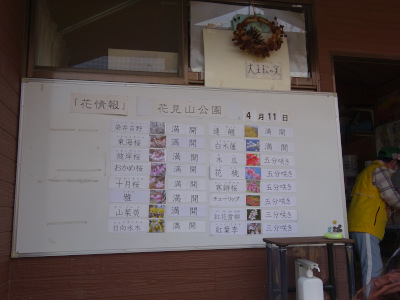 「花情報」 花見山公園 4月11日
染井吉野 満開
東海桜 満開
彼岸桜 満開
おかめ桜 満開
十月桜 満開
雅 満開
山茱萸 満開
日向水木 満開
連翹 満開
白木蓮 満開
木瓜 五分咲き
花桃 五分咲き
寒緋桜 五分咲き
チューリップ 五分咲き
三分咲き
紅葉李 三分咲き